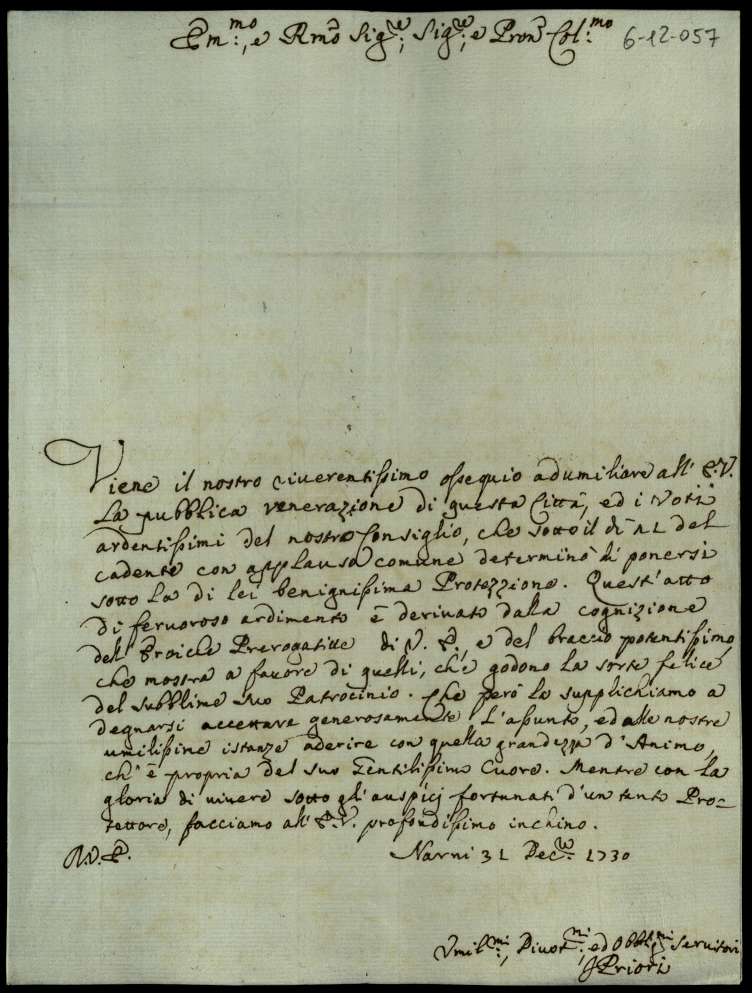 Em:mo, e Rmo Sigre:, Sigre:, e Pron Col:mo 6-12-057
Viene il nostro riverentissimo ossequio ad umiliare all' E.V.
La pubblica venerazione di questa Città, ed i Voti
ardentissimi del nostro Consiglio, che sotto il dì del
cadente con applauso comune determinò di ponersi
sotto la di lei benignissima Protezzione. Quest'atto
di fervoroso ardimento è derivato dalla cognizione
dell'Eroiche Prerogative di V. E., e del braccio potentissimo,
che mostra a favore di quelli, che godono la sorte felice
del subblime suo Patrocinio. Che però la supplichiamo a
degnarsi accettare generosamente l'assunto, ed alle nostre
umilissime istanze aderire con quella grandezza d'Animo,
ch'è propria del suo Gentilissimo Cuore. Mentre con la
gloria di vivere sotto gl'auspicj fortunati d'un tanto Pro-
tettore, facciamo all' E.V. profondissimo inchino.
Di V. E. Narni 31 Decre: 1730
Vmil:mi, Divot:mi, ed Obblig:mi Servitori
I Priori